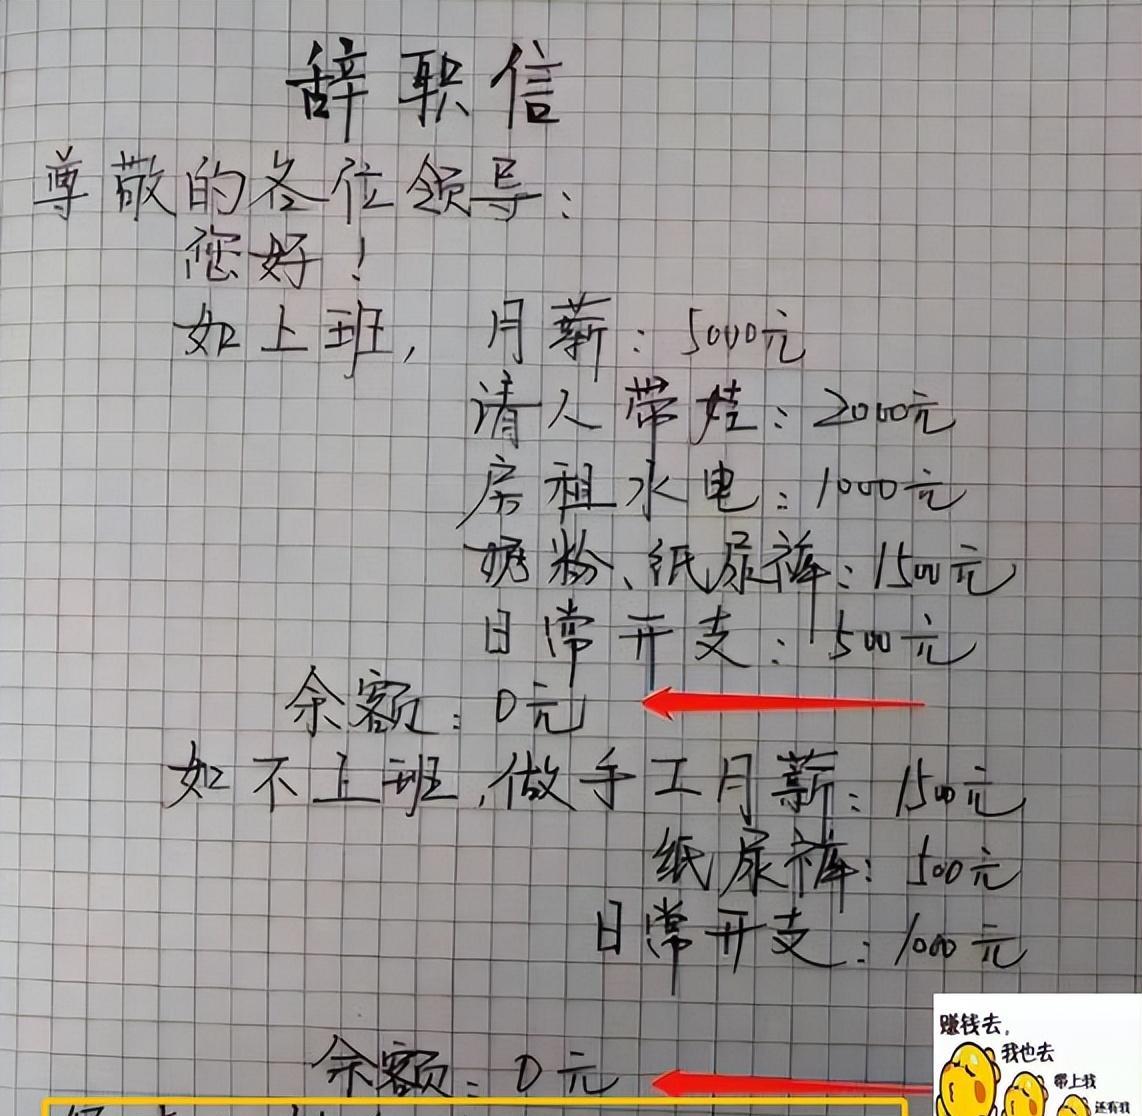 辞职信
尊敬的各位领导：
您好！
如上班，月薪：5000元
请人带娃：2000元
房租水电：1000元
奶粉、纸尿裤：1500元
日常开支：500元
余额：0元
如不上班，做手工月薪：1500元
纸尿裤：500元
日常开支：1000元
余额：0元
赚钱去，
我也去
带上我
还有我